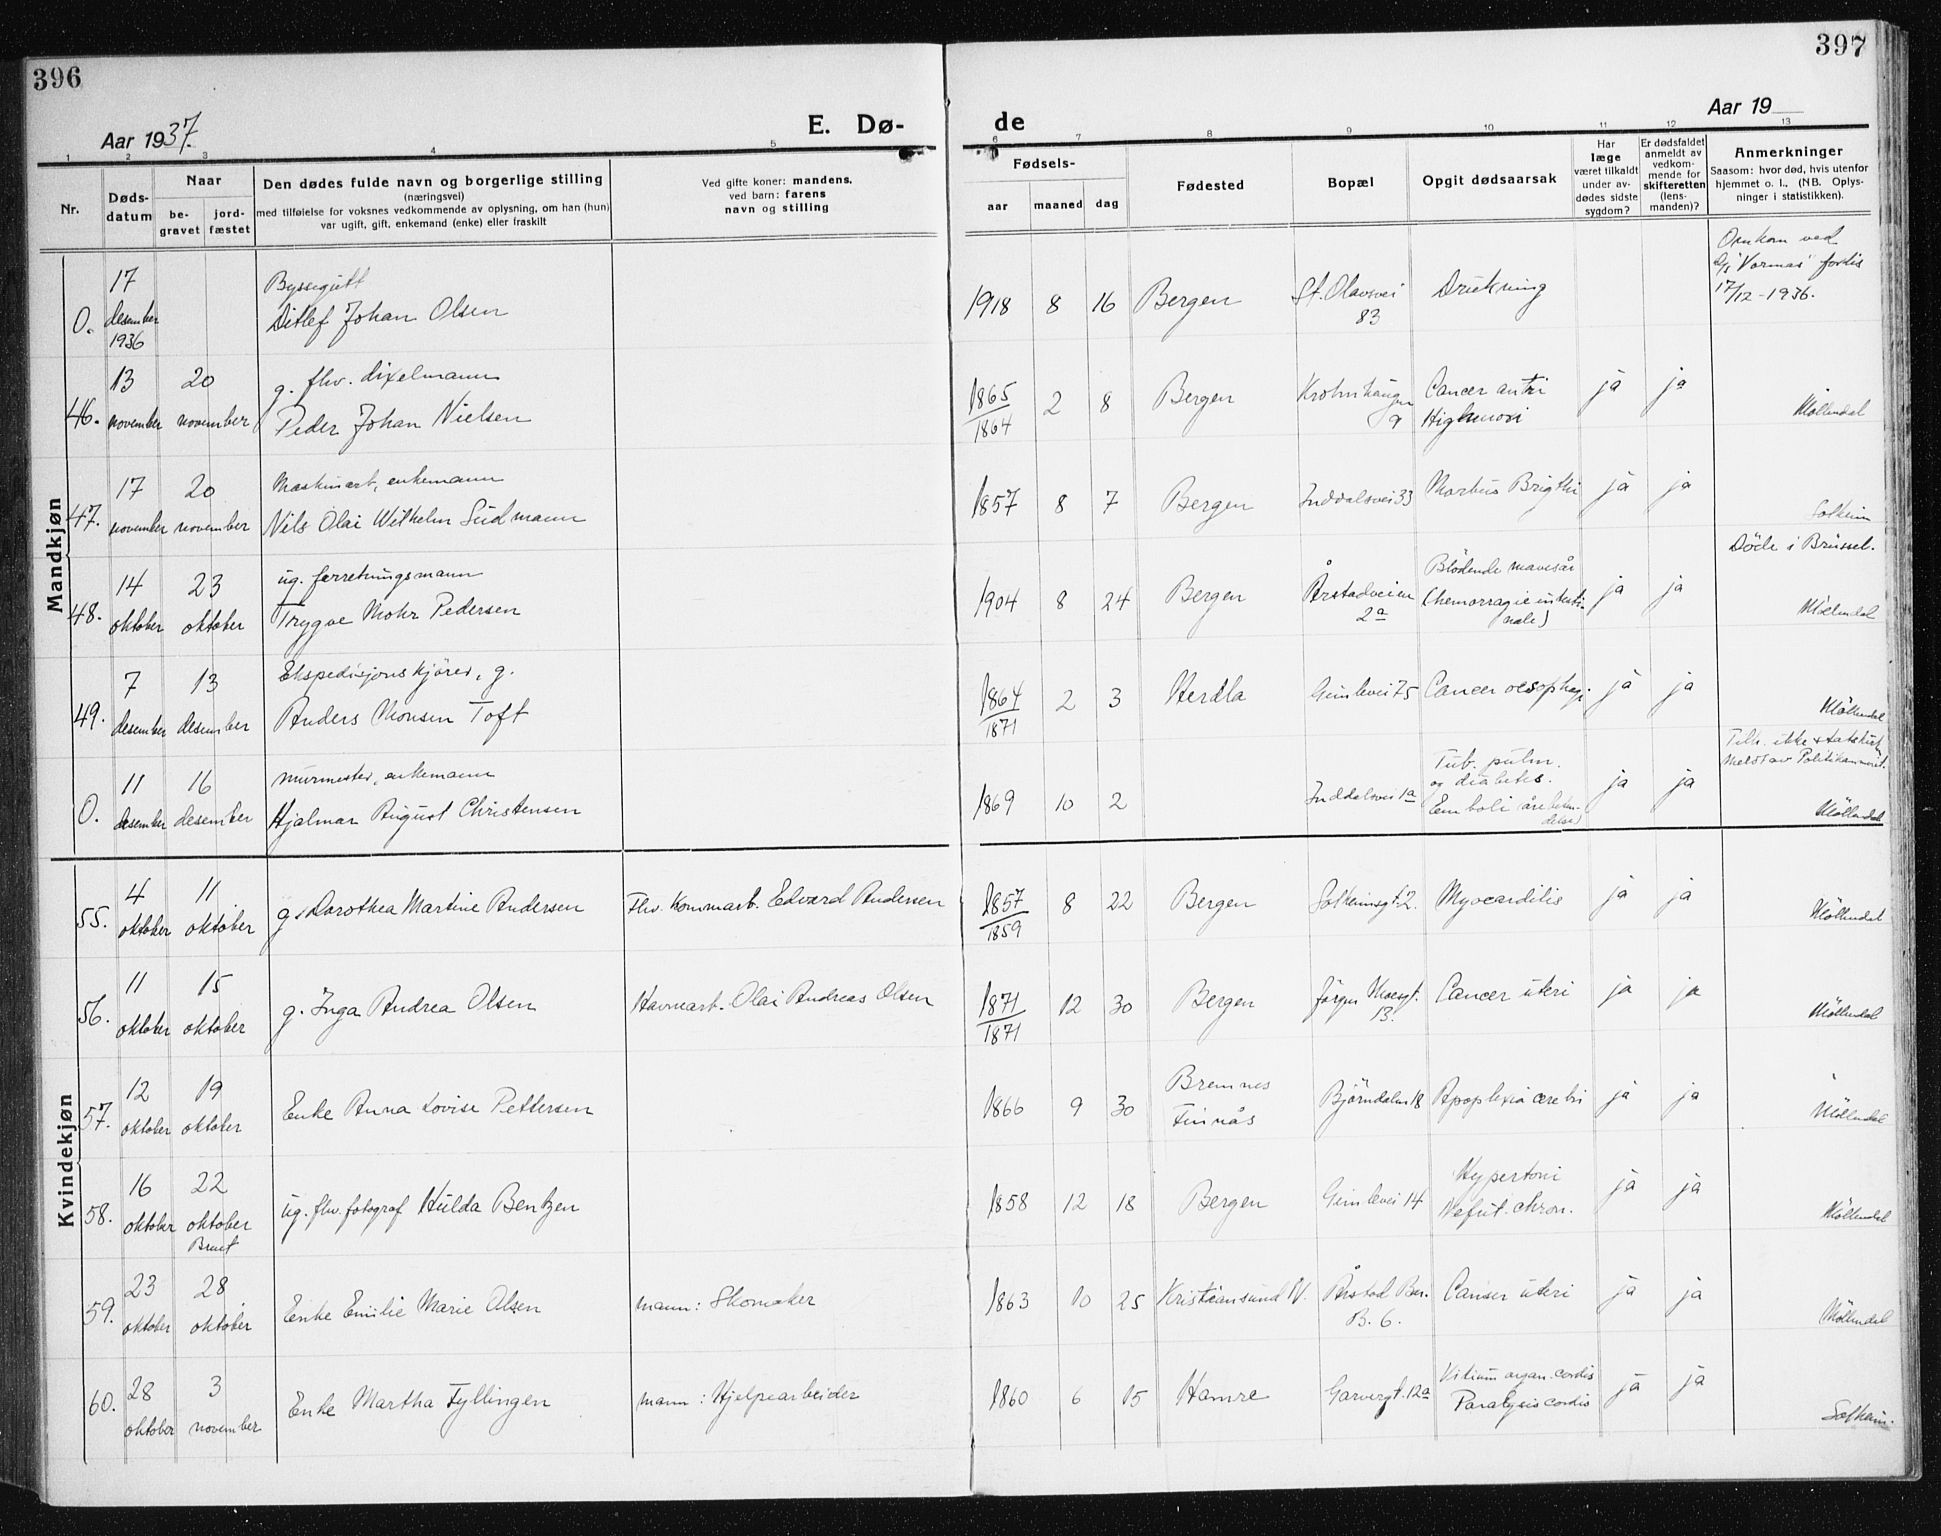 396
397
Aar 1937.
E. Dø-
de
Aar 19
1 2 3 4 5 6 7 8 9 10 11 12 13
Nr.
Døds-
datum
Naar
be-
gravet
jord-
fæstet
Den dødes fulde navn og borgerlige stilling
(næringsvei)
med tilføielse for voksnes vedkommende av oplysning, om han (hun)
var ugift, gift, enkemand (enke) eller fraskilt
Ved gifte koner: mandens,
ved barn: farens
navn og stilling
Fødsels-
aar maaned dag
Fødested
Bopæl
Opgit dødsaarsak
Har
læge
været tilkaldt
under av-
dødes sidste
sygdom?
Er dødsfaldet
anmeldt av
vedkom-
mende for
skifteretten
(lens-
manden)?
Anmerkninger
Saasom: hvor død, hvis utenfor
hjemmet o. l., (NB. Oplys-
ninger i statistikken).
Mandkjøn
0.
17
desember
1936
Byssegutt
Ditlef Johan Olsen
1918 8 16
Bergen
St. Olavsvei
83
Drukning
Omkom ved
D/S "Vormas" forlis
17/12-1936.
46.
13
november
20
november
g. fhv. dixelmann
Peder Johan Nielsen
1865
1864
2 8
Bergen
Krohnhaugen
9
Cancer antri
Highmori
ja
ja
Møllendal
47.
17
november
20
november
Maskinarb., enkemann
Nils Olai Wilhelm Sudmann
1857 8 7
Bergen
Inddalsvei 33
Morbus Brigthi
ja
ja
Solheim
48.
14
oktober
23
oktober
ug. forretningsmann
Trygve Mohr Pedersen
1904 8 24
Bergen
Årstadveien
2a
Blödende mavesår
(hemorragie intesti-
nale)
ja
ja
Döde i Brüssel.
Møllendal
49.
7
desember
13
desember
Ekspedisjonskjörer, g.
Anders Monsen Toft
1864
1871
2 3
Herdla
Gimlevei 75
Cancer oesophagi.
ja
ja
Møllendal
0.
11
desember
16
desember
murmester, enkemann
Hjalmar August Christensen
1869 10 2
Inddalsvei 1a
Tub. pulm.
og diabetes.
Emboli
ja
ja
Tilh. ikke statskirken
Meldt av Politikammeret.
Møllendal
Kvindekjøn
55.
4
oktober
11
oktober
g. Dorothea Martine Andersen
Fhv. Kommarb. Edvard Andersen
1857
1859
8 22
Bergen
Solheimsgt. 2.
Myocarditis
ja
ja
Møllendal
56.
11
oktober
15
oktober
g. Inga Andrea Olsen
Havnearb. Olai Andreas Olsen
1871
1871
12 30
Bergen
Jörgen Moesgt.
13.
Cancer uteri
ja
ja
Møllendal
57.
12
oktober
19
oktober
Enke Anna Lovise Pettersen
1866 9 30
Bremnes
Finnås
Björndalen 18
Apoplexia cerebri
ja
ja
Møllendal
58.
16
oktober
22
oktober
Brent
ug. fhv. fotograf Hulda Bentzen
1858 12 18
Bergen
Gimlevei 14
Hypertoni
Nefrit. chron.
ja
ja
Møllendal
59.
23
oktober
28
oktober
Enke Emilie Marie Olsen
mann: Skomaker
1863 10 25
Kristiansund N.
Årstad Ber.
B. 6.
Canser uteri
ja
ja
Møllendal
60.
28
oktober
3
november
Enke Martha Fyllingen
mann: Hjelpearbeider
1860 6 15
Hamre
Garvergt. 12a
Vitium organ. cordis
Paralysis cordis
ja
ja
Solheim.